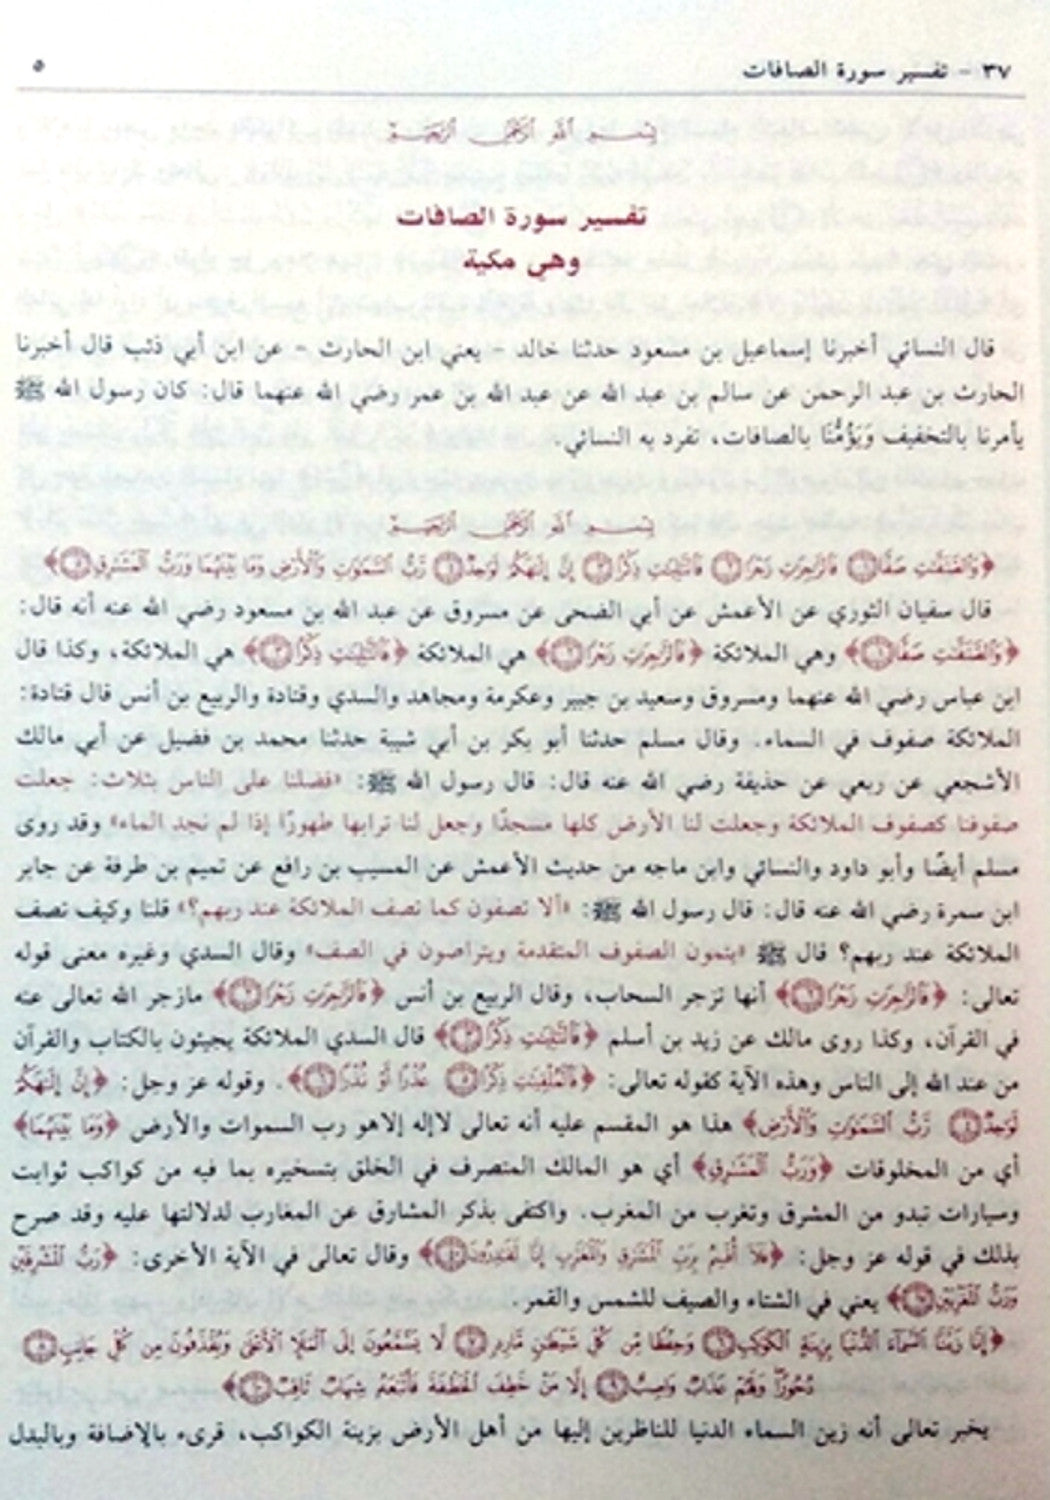 ٣٧ - تفسير سورة الصافات ٥
بِسْمِ اللَّهِ الرَّحْمَنِ الرَّحِيمِ
تفسير سورة الصافات
وهي مكية
قال النسائي أخبرنا إسماعيل بن مسعود حدثنا خالد - يعني ابن الحارث - عن ابن أبي ذئب قال أخبرنا
الحارث بن عبد الرحمن عن سالم بن عبد الله عن عبد الله بن عمر رضي الله عنهما قال: كان رسول الله ﷺ
يأمرنا بالتخفيف وَيَؤُمُّنَا بالصافات، تفرد به النسائي.
بِسْمِ اللَّهِ الرَّحْمَنِ الرَّحِيمِ
﴿وَالصَّٰٓفَّٰتِ صَفًّا ١ فَالزَّٰجِرَٰتِ زَجْرًا ٢ فَالتَّٰلِيَٰتِ ذِكْرًا ٣ إِنَّ إِلَٰهَكُمْ لَوَٰحِدٌ ٤ رَّبُّ السَّمَٰوَٰتِ وَالْأَرْضِ وَمَا بَيْنَهُمَا وَرَبُّ الْمَشَٰرِقِ ٥﴾
قال سفيان الثوري عن الأعمش عن أبي الضحى عن مسروق عن عبد الله بن مسعود رضي الله عنه أنه قال:
﴿وَالصَّٰٓفَّٰتِ صَفًّا ١﴾ وهي الملائكة ﴿فَالزَّٰجِرَٰتِ زَجْرًا ٢﴾ هي الملائكة ﴿فَالتَّٰلِيَٰتِ ذِكْرًا ٣﴾ هي الملائكة، وكذا قال
ابن عباس رضي الله عنهما ومسروق وسعيد بن جبير وعكرمة ومجاهد والسدي وقتادة والربيع بن أنس قال قتادة:
الملائكة صفوف في السماء. وقال مسلم حدثنا أبو بكر بن أبي شيبة حدثنا محمد بن فضيل عن أبي مالك
الأشجعي عن ربعي عن حذيفة رضي الله عنه قال: قال رسول الله ﷺ: «فضلنا على الناس بثلاث: جعلت
صفوفنا كصفوف الملائكة وجعلت لنا الأرض كلها مسجدًا وجعل لنا ترابها طهورًا إذا لم نجد الماء» وقد روى
مسلم أيضًا وأبو داود والنسائي وابن ماجه من حديث الأعمش عن المسيب بن رافع عن تميم بن طرفة عن جابر
ابن سمرة رضي الله عنه قال: قال رسول الله ﷺ: «ألا تصفون كما تصف الملائكة عند ربهم؟» قلنا وكيف تصف
الملائكة عند ربهم؟ قال ﷺ «يتمون الصفوف المتقدمة ويتراصون في الصف» وقال السدي وغيره معنى قوله
تعالى: ﴿فَالزَّٰجِرَٰتِ زَجْرًا ٢﴾ أنها تزجر السحاب، وقال الربيع بن أنس ﴿فَالزَّٰجِرَٰتِ زَجْرًا ٢﴾ مازجر الله تعالى عنه
في القرآن، وكذا روى مالك عن زيد بن أسلم ﴿فَالتَّٰلِيَٰتِ ذِكْرًا ٣﴾ قال السدي الملائكة يجيئون بالكتاب والقرآن
من عند الله إلى الناس وهذه الآية كقوله تعالى: ﴿فَالْمُلْقِيَٰتِ ذِكْرًا ٥ عُذْرًا أَوْ نُذْرًا ٦﴾. وقوله عز وجل: ﴿إِنَّ إِلَٰهَكُمْ
لَوَٰحِدٌ ٤ رَّبُّ السَّمَٰوَٰتِ وَالْأَرْضِ﴾ هذا هو المقسم عليه أنه تعالى لاإله إلاهو رب السموات والأرض ﴿وَمَا بَيْنَهُمَا﴾
أي من المخلوقات ﴿وَرَبُّ الْمَشَٰرِقِ﴾ أي هو المالك المتصرف في الخلق بتسخيره بما فيه من كواكب ثوابت
وسيارات تبدو من المشرق وتغرب من المغرب. واكتفى بذكر المشارق عن المغارب لدلالتها عليه وقد صرح
بذلك في قوله عز وجل: ﴿فَلَآ أُقْسِمُ بِرَبِّ الْمَشَٰرِقِ وَالْمَغَٰرِبِ إِنَّا لَقَٰدِرُونَ ٤٠﴾ وقال تعالى في الآية الأخرى: ﴿رَبُّ الْمَشْرِقَيْنِ
وَرَبُّ الْمَغْرِبَيْنِ ١٧﴾ يعني في الشتاء والصيف للشمس والقمر.
﴿إِنَّا زَيَّنَّا السَّمَآءَ الدُّنْيَا بِزِينَةٍ الْكَوَاكِبِ ٦ وَحِفْظًا مِّن كُلِّ شَيْطَٰنٍ مَّارِدٍ ٧ لَّا يَسَّمَّعُونَ إِلَى الْمَلَإِ الْأَعْلَىٰ وَيُقْذَفُونَ مِن كُلِّ جَانِبٍ ٨
دُحُورًا وَلَهُمْ عَذَابٌ وَاصِبٌ ٩ إِلَّا مَنْ خَطِفَ الْخَطْفَةَ فَأَتْبَعَهُ شِهَابٌ ثَاقِبٌ ١٠﴾
يخبر تعالى أنه زين السماء الدنيا للناظرين إليها من أهل الأرض بزينة الكواكب، قرىء بالإضافة وبالبدل